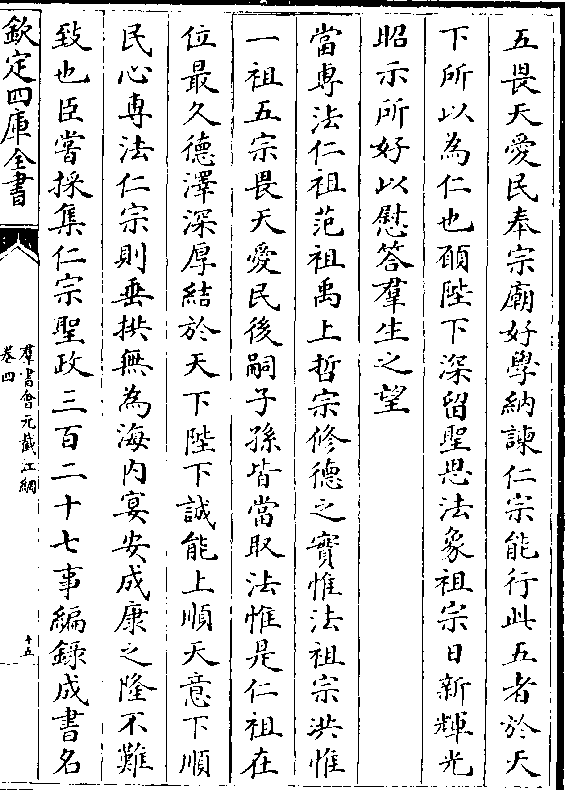 五畏天愛民奉宗廟好學納諫仁宗能行此五者於天
下所以為仁也願陛下深留聖思法象祖宗日新輝光
昭示所好以慰答羣生之望
當專法仁祖范祖禹上哲宗修德之實惟法祖宗洪惟
一祖五宗畏天愛民後嗣子孫皆當取法惟是仁祖在
位最久德澤深厚結於天下陛下誠能上順天意下順
民心専法仁宗則垂拱無為海内宴安成康之隆不難
致也臣嘗採集仁宗聖政三百二十七事編錄成書名
欽定四庫全書
羣書會元截江網
卷四
十五